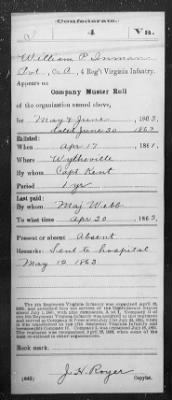 Confederate.
4 Va.
William P. Inman
Pvt., Co. A, 4 Reg't Virginia Infantry.
Appears on
Company Muster Roll
of the organization named above,
for May & June, 1863.
dated June 30 1863
Enlisted:
When Apr 17, 1861.
Where Wytheville
By whom Capt Kent
Period 1 yr
Last paid:
By whom Maj Webb
To what time Apr 30, 1863.
Present or absent Absent
Remarks: Sent to hospital
May 12 1863
Book mark:
J. H. Royer
(642) Copyist.